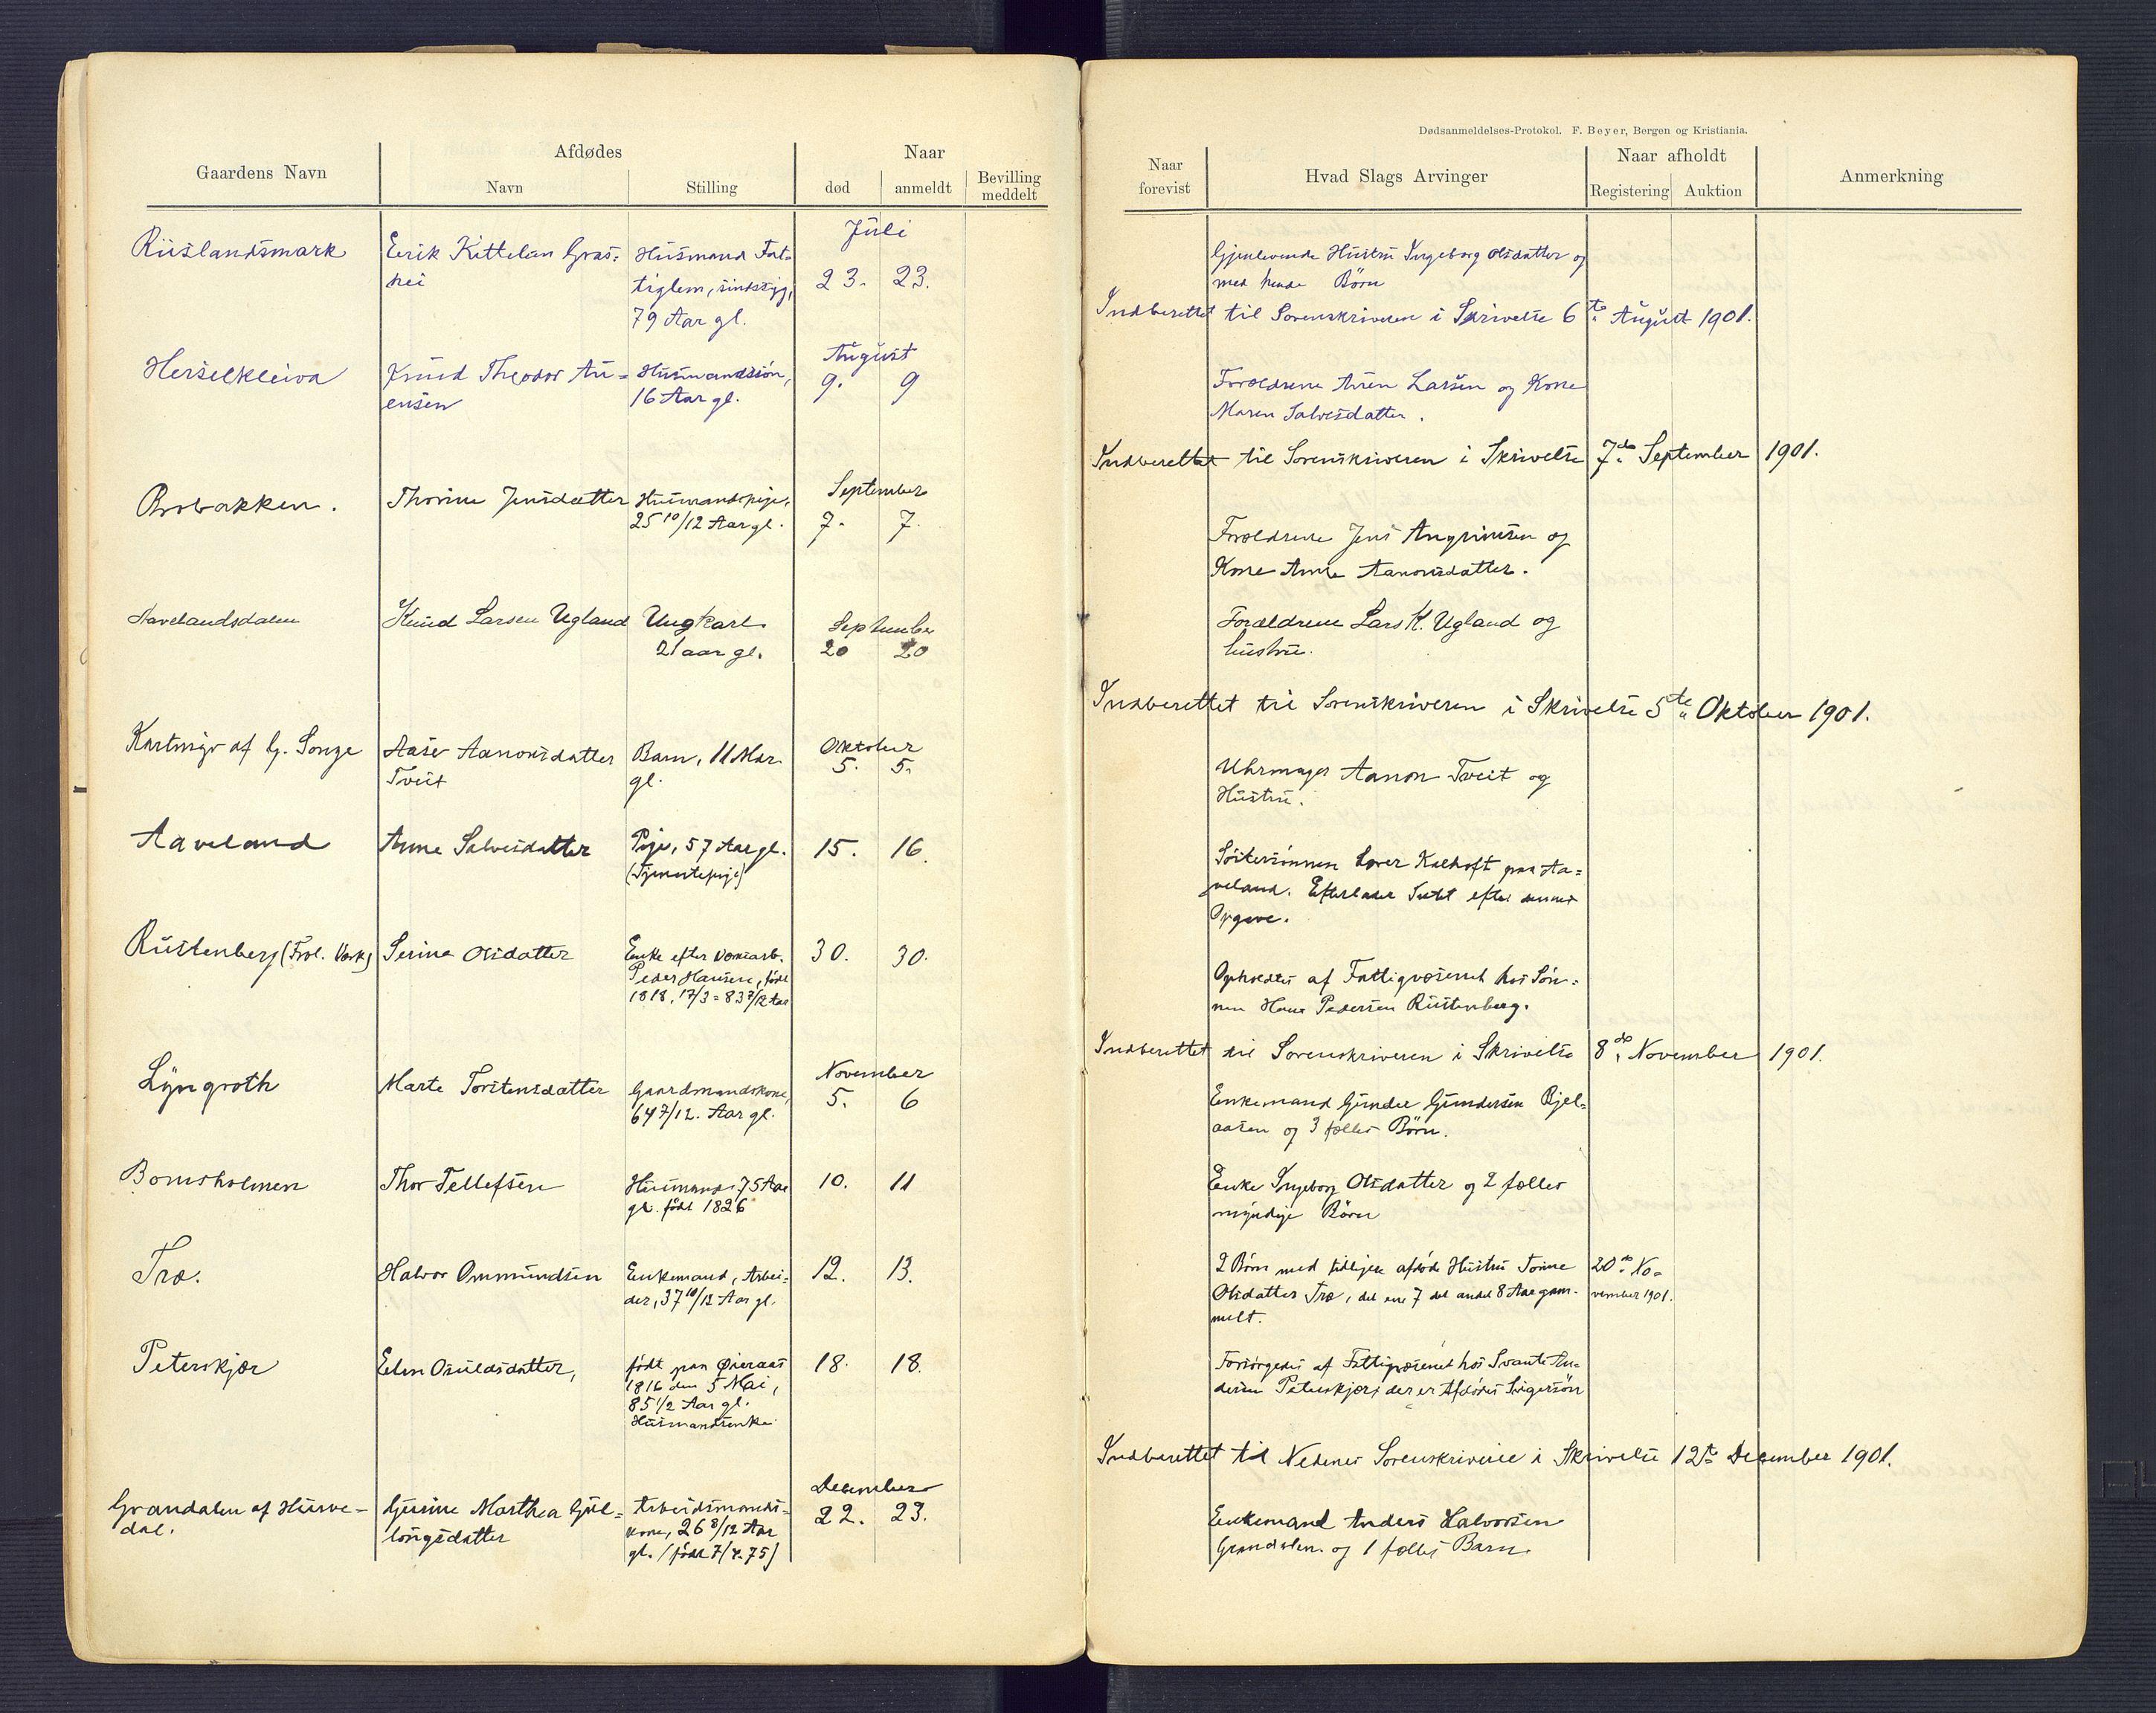 Dødsanmeldelses-Protokol. F. Beyer, Bergen og Kristiania.
Gaardens Navn
Afdødes
Navn
Stilling
Naar
død
anmeldt
Bevilling
meddelt
Naar
forevist
Hvad Slags Arvinger
Naar afholdt
Registering
Auktion
Anmerkning
Riislandsmark
Eerik Kittelsen Gras=
hei
Husmand Fat=
tiglem, sindssyg,
79 Aar gl.
Juli
23. 23.
Gjenlevende Hustru Ingeborg Olsdatter og
med hende Børn
Indberettet til Sorenskriveren i Skrivelse 6te August 1901.
Herselkleiva
Knud Theodor An=
ensen
Husmandssøn,
16 Aar gl.
August
9. 9
Forældrene Anen Larsen og Kone
Maren Salvesdatter.
Indberettet til Sorenskriveren i Skrivelse 7de September 1901.
Brobakken.
Thorine Jensdatter
Husmandspige,
25 10/12 Aar gl.
September
7. 7.
Forældrene Jens Angrimsen og
Kone Anne Aanonsdatter.
Aavelandsdalen
Knud Larsen Ugland
Ungkarl
21 aar gl.
September
20 20
Forældrene Lars K. Ugland og
hustru.
Indberettet til Sorenskriveren i Skrivelse 5te Oktober 1901.
Kartmyr af G. Songe
Aase Aanonsdatter
Tveit
Barn, 11 Mdr.
gl.
Oktober
5. 5.
Uhrmager Aanon Tveit og
Hustru.
Aaveland
Anne Salvesdatter
Pige, 57 Aar gl.
(Tjenestepige)
15. 16.
Søstersønnen Kalheft paa Aa=
veland. Efterlader Intet efter dennes
Opgave.
Rustenberg (Frol. Værk)
Serine Olsdatter
Enke efter
Peder Hansen, født
1818, 17/3 = 83 7/12 Aar
30. 30.
Opholdtes af Fattigvæsenet hos Søn=
nen Hans Pedersen Rustenberg.
Indberettet til Sorenskriveren i Skrivelse 8de November 1901.
Lyngroth
Marte Torstensdatter
Gaardmandskone,
64 7/12. Aar gl.
November
5. 6
Enkemand Gunder Gundersen Bjel=
aasen og 3 fælles Børn.
Bomsholmen
Thor Tellefsen
Husmand 75 Aar
gl. født 1826
10. 11
Enke Ingeborg Olsdatter og 2 fælles
myndige Børn
Træ.
Halvor Ommundsen
Enkemand, Arbei=
der, 37 10/12 Aar gl.
12. 13.
2 Børn med tidligere afdøde Hustru Tonne
Olsdatter Træ, det ene 7 det andet 8 Aar gam-
melt.
20de No=
vember 1901.
Peterskjær
Elen Osuldsdatter,
født paa Øieraas
1816 den 5 Mai,
85 1/2 Aar gl.
Husmandsenke
18. 18.
Forsørgedes af Fattigvæsenet hos Svante An=
dersen Peterskjær, der er Afdødes Svigersøn
Indberettet til Nedenes Sorenskriverie i Skrivelse 12te December 1901.
Grandalen af Hurve=
dal.
Gusine Marthea Gul=
longsdatter
Arbeidsmands=
kone, 26 8/12 Aar
gl. (født 7/4.75)
December
22. 23.
Enkemand Anders Halvorsen
Grandalen og 1 fælles Barn.